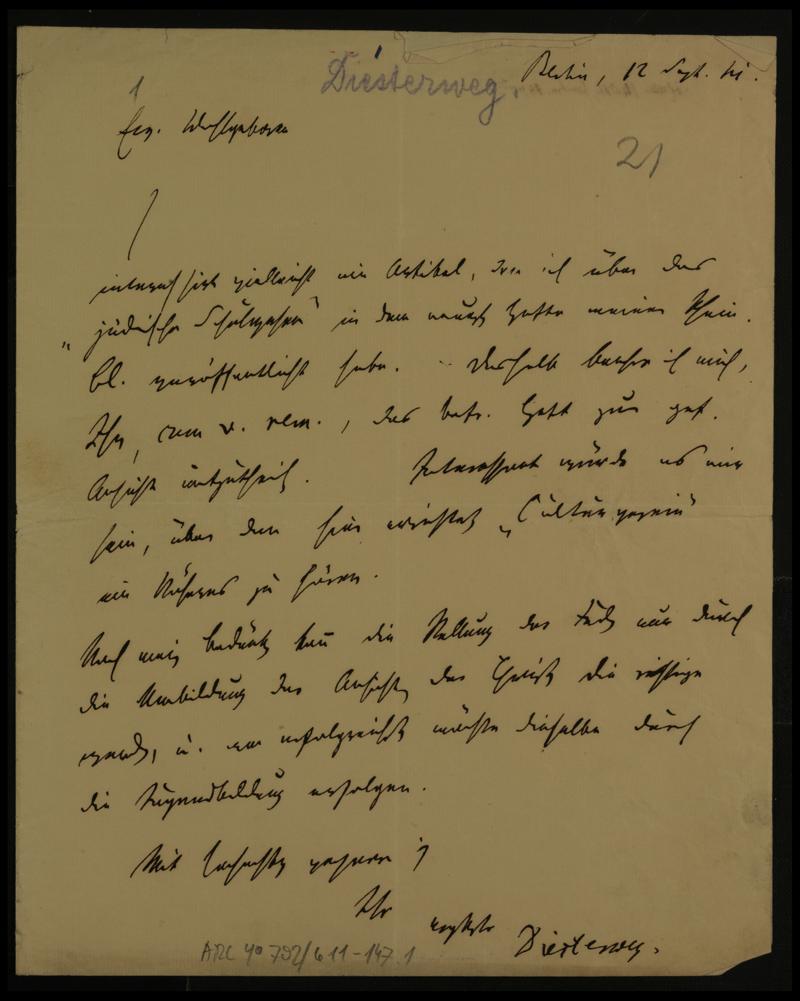 1
Diesterweg.
Berlin, 12 Sept. 41.
Ew. Wohlgeboren
21
interessirt vielleicht ein Artikel, den ich über das
„jüdische Schulwesen" in dem neuest Hefte meiner Rhein.
Bl. veröffentlicht habe. – Deshalb beehre ich mich,
Ihn, das betr. Heft zur gef.
Ansicht mitzutheil. Interessant würde es mir
sein, über den hier errichtet „Culturverein"
ein Näheres zu hören.
Nach mein Bedünk kan die Stellung der Jud nur durch
die Umbildung der Ansicht der Christ die richtige
werd, u. am erfolgreichst möchte dieselbe durch
die Jugendbildung erfolgen.
Mit Hochachtg verharre ich
Ihr ergebste Diesterweg.
ARC 4o 792/G11-147.1